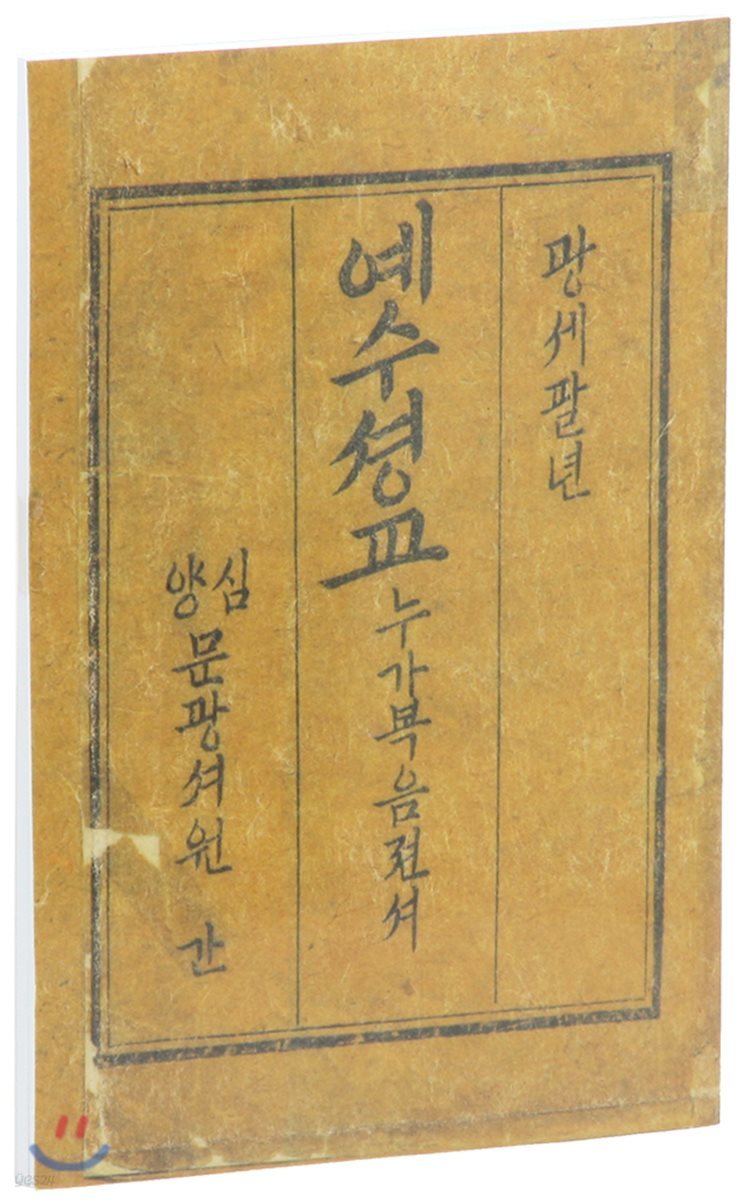 광세팔년
예수셩교누가복음젼셔
심양 문광셔원 간
yes24